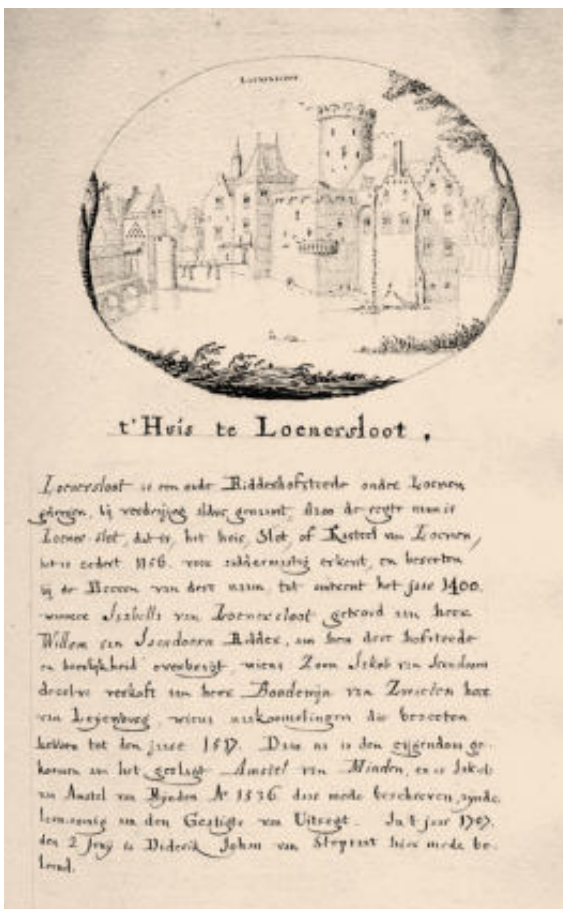 LOENERSLOOT
t'Huis te Loenersloot.
Loenersloot is een oude Ridderhofstede onder Loenen
gelegen, bij verdraijing aldus genaamt, daar de regte naam is
Loener slot, dat is, het huis, Slot, of Kasteel van Loenen,
het is zedert 1156. voor riddermatig erkent, en bezeeten
bij de Heeren van deze naam, tot omtrent het jaar 1400.
wanneer Isabella van Loenersloot getroud aan heer
Willem van Isendoorn Ridder, aan hem deze hofstede
en heerlijkheid overbragt, wiens Zoon Jakob van Isendoorn
dezelve verkoft aan heer Boudewijn van Zwieten heer
van Leyenburg, wiens naakoomelingen die bezeeten
hebben tot den jaare Daar na is den eijgendom ge-
koomen aan het geslagt Amstel van Minden, en is Jakob
van Amstel van Mynden Ao 1536 daar mede beschreeven, zynde
leenroerig aan den Gestigte van Uitregt. In't jaar 1707.
den 2 Junij is Diderik Johan van Stepraat hier mede be-
leend.